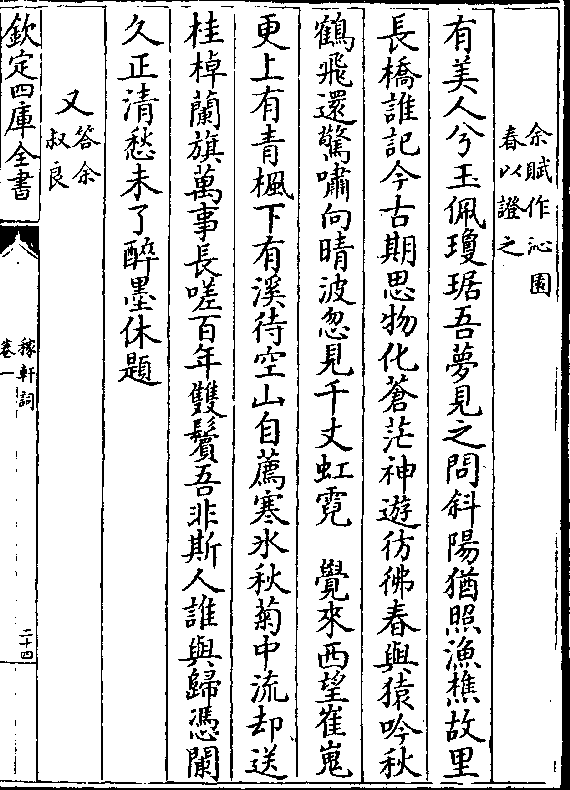 余賦作沁園
春以證之
有美人兮玉佩瓊琚吾夢見之問斜陽猶照漁樵故里
長橋誰記今古期思物化蒼茫神遊彷彿春與猿吟秋
鶴飛還驚嘯向晴波忽見千丈虹霓　覺來西望崔嵬
更上有青楓下有溪待空山自薦寒氷秋菊中流却送
桂棹蘭旗萬事長嗟百年雙鬢吾非斯人誰與歸憑闌
久正清愁未了醉墨休題
又
答余
叔良
欽定四庫全書
稼軒詞
卷一
二十四